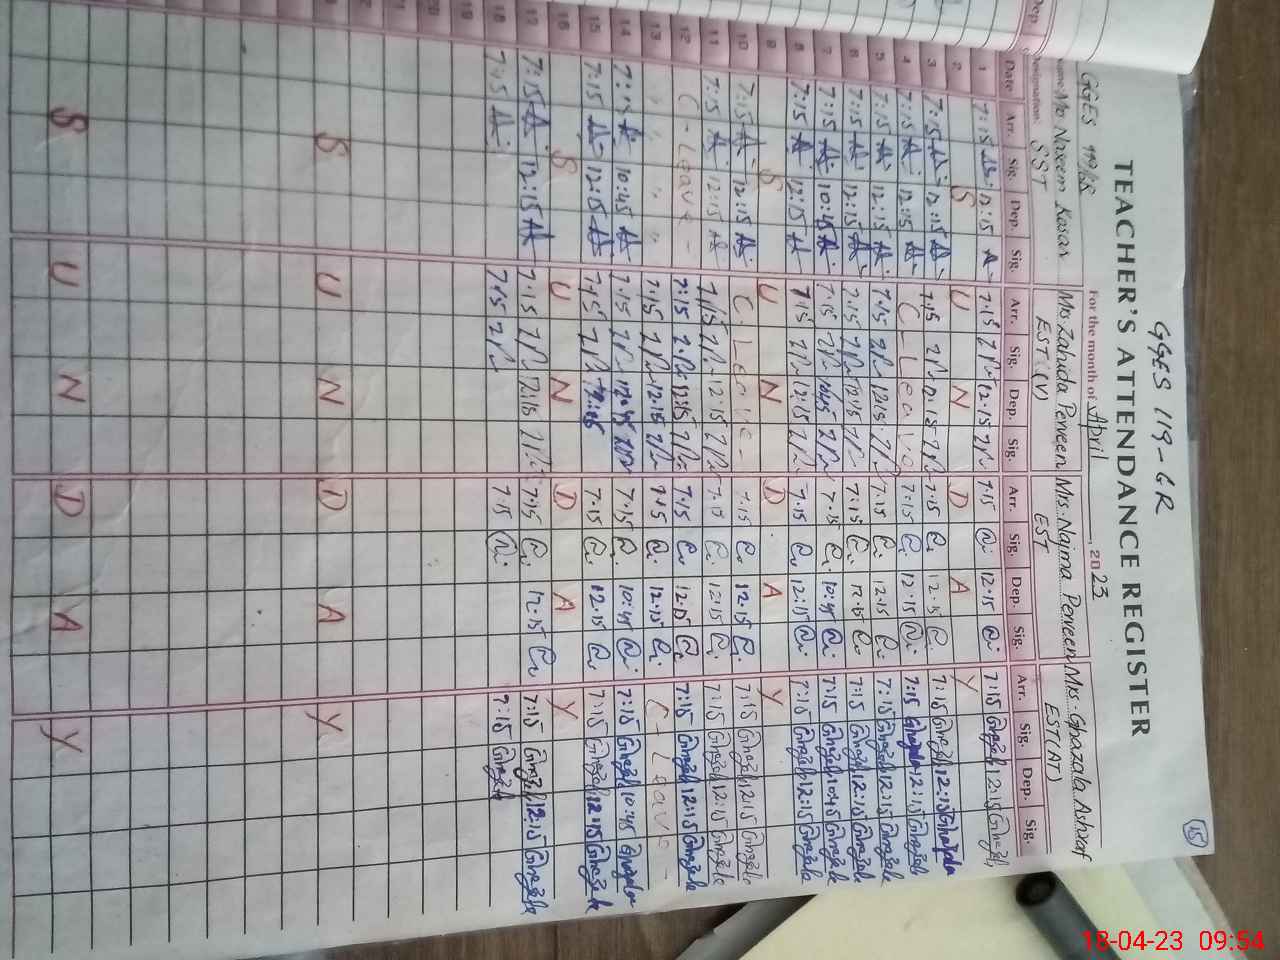 GGES 119-GR
15
TEACHER'S ATTENDANCE REGISTER
GGES 119/GR For the month of April, 2023
Name: Ms Naseem Kosar Ms Zahida Perveen Mrs. Najma Perveen Mrs. Ghazala Ashraf
Designation: SST EST (V) EST EST (AT)
Date Arr. Sig. Dep. Sig. Arr. Sig. Dep. Sig. Arr. Sig. Dep. Sig. Arr. Sig. Dep. Sig.
1 7:15 12:15 7:15 12:15 7:15 12:15 7:15 Ghazala 12:15 Ghazala
2 S U N D A Y
3 7:15 12:15 7:15 12:15 7:15 12:15 7:15 Ghazala 12:15 Ghazala
4 7:15 12:15 C-Leave 7:15 12:15 7:15 Ghazala 12:15 Ghazala
5 7:15 12:15 7:15 12:15 7:15 12:15 7:15 Ghazala 12:15 Ghazala
6 7:15 12:15 7:15 12:15 7:15 12:15 7:15 Ghazala 12:15 Ghazala
7 7:15 10:45 7:15 10:45 7:15 10:45 7:15 Ghazala 10:45 Ghazala
8 7:15 12:15 7:15 12:15 7:15 12:15 7:15 Ghazala 12:15 Ghazala
9 S U N D A Y
10 7:15 12:15 C-Leave - 7:15 12:15 7:15 Ghazala 12:15 Ghazala
11 7:15 12:15 7:15 12:15 7:15 12:15 7:15 Ghazala 12:15 Ghazala
12 C-Leave - 7:15 12:15 7:15 12:15 7:15 Ghazala 12:15 Ghazala
13 " " " " 7:15 12:15 7:15 12:15 C-Leave -
14 7:15 10:45 7:15 10:45 7:15 10:45 7:15 Ghazala 10:45 Ghazala
15 7:15 12:15 7:15 12:15 7:15 12:15 7:15 Ghazala 12:15 Ghazala
16 S U N D A Y
17 7:15 12:15 7:15 12:15 7:15 12:15 7:15 Ghazala 12:15 Ghazala
18 7:15 7:15 7:15 7:15 Ghazala
19
20
S U N D A Y
S U N D A Y
18-04-23 09:54